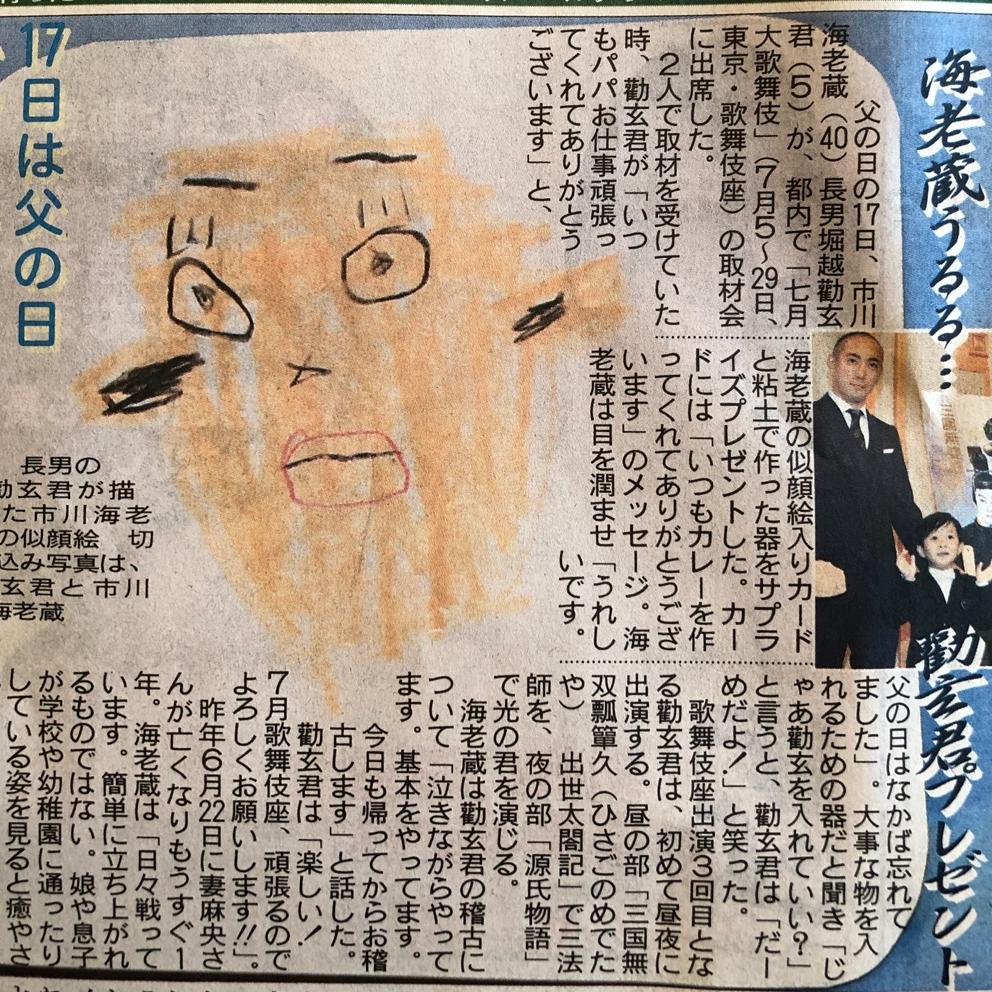 海老蔵うるる…
勸玄君プレゼント
父の日の17日、市川
海老蔵(40)長男堀越勸玄
君(5)が、都内で「七月
大歌舞伎」(7月5〜29日、
東京・歌舞伎座)の取材会
に出席した。
2人で取材を受けていた
時、勸玄君が「いつ
もパパお仕事頑張っ
てくれてありがとう
ございます」と、
海老蔵の似顔絵入りカード
と粘土で作った器をサプラ
イズプレゼントした。カー
ドには「いつもカレーを作
ってくれてありがとうござ
います」のメッセージ。海
老蔵は目を潤ませ「うれし
いです。
父の日はなかば忘れて
ました」。大事な物を入
れるための器だと聞き「じ
ゃあ勸玄を入れていい?」
と言うと、勸玄君は「だー
めだよ!」と笑った。
歌舞伎座出演3回目とな
る勸玄君は、初めて昼夜に
出演する。昼の部「三国無
双瓢箪久(ひさごのめでた
や) 出世太閤記」で三法
師を、夜の部「源氏物語」
で光の君を演じる。
海老蔵は勸玄君の稽古に
ついて「泣きながらやって
ます。基本をやってます。
今日も帰ってからお稽
古します」と話した。
勸玄君は「楽しい!
7月歌舞伎座、頑張るので
よろしくお願いします!!」。
昨年6月22日に妻麻央さ
んが亡くなりもうすぐ1
年。海老蔵は「日々戦って
います。簡単に立ち上がれ
るものではない。娘や息子
が学校や幼稚園に通ったり
している姿を見ると癒やさ
17日は父の日
長男の
勸玄君が描
た市川海老
の似顔絵 切
込み写真は、
玄君と市川
海老蔵